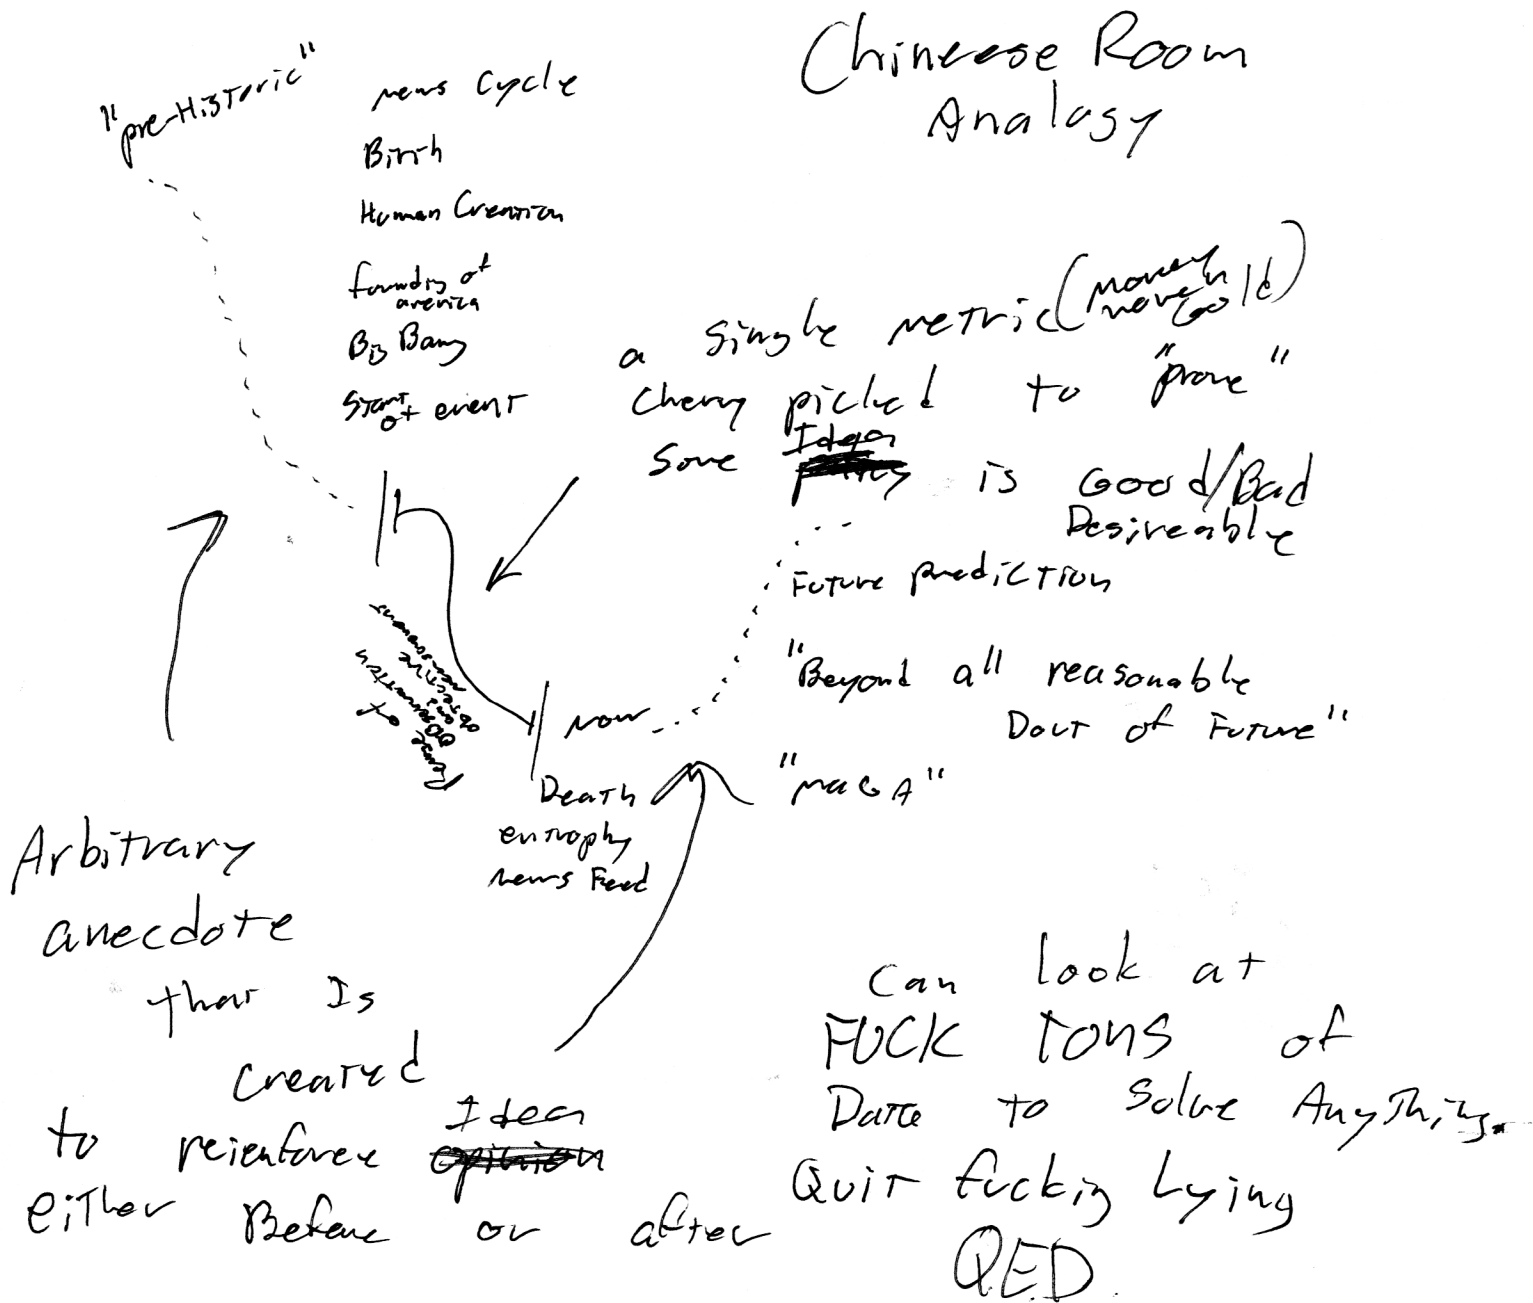 Chineese Room
Analogy
"pre-Historic"
news Cycle
Birth
Human Creation
founding of
america
Big Bang
Start
of event
a single metric (money
never
Gold)
Cherry picked to "prove"
Some Idea is Good/Bad
Desireable
Future prediction
"Beyond all reasonable
Dout of Future"
"MAGA"
now
Death
entrophy
news Feed
Arbitrary
anecdote
that Is
created
to reienforce Idea
either Before or after
can look at
FUCK TONS of
Data to solve Anything.
Quit fucking Lying
QED.